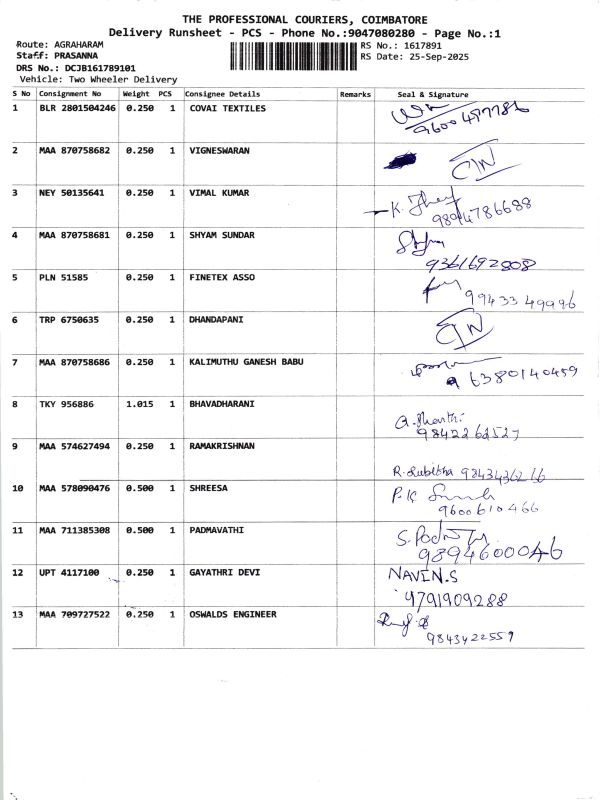 THE PROFESSIONAL COURIERS, COIMBATORE
Delivery Runsheet - PCS - Phone No.:9047080280 - Page No.:1
Route: AGRAHARAM
Staff: PRASANNA
DRS No.: DCJB161789101
Vehicle: Two Wheeler Delivery
RS No.: 1617891
RS Date: 25-Sep-2025
S No Consignment No Weight PCS Consignee Details Remarks Seal & Signature
1 BLR 2801504246 0.250 1 COVAI TEXTILES
9600497786
2 MAA 870758682 0.250 1 VIGNESWARAN C/N
3 NEY 50135641 0.250 1 VIMAL KUMAR K.
9894786688
4 MAA 870758681 0.250 1 SHYAM SUNDAR
9361692808
5 PLN 51585 0.250 1 FINETEX ASSO
9943349996
6 TRP 6750635 0.250 1 DHANDAPANI C/N
7 MAA 870758686 0.250 1 KALIMUTHU GANESH BABU
6380140459
8 TKY 956886 1.015 1 BHAVADHARANI
9842262527
9 MAA 574627494 0.250 1 RAMAKRISHNAN
R. 
10 MAA 578090476 0.500 1 SHREESA P.K
9600610466
11 MAA 711385308 0.500 1 PADMAVATHI S.
9894600046
12 UPT 4117100 0.250 1 GAYATHRI DEVI NAVIN.S
9791909288
13 MAA 709727522 0.250 1 OSWALDS ENGINEER
9843422559